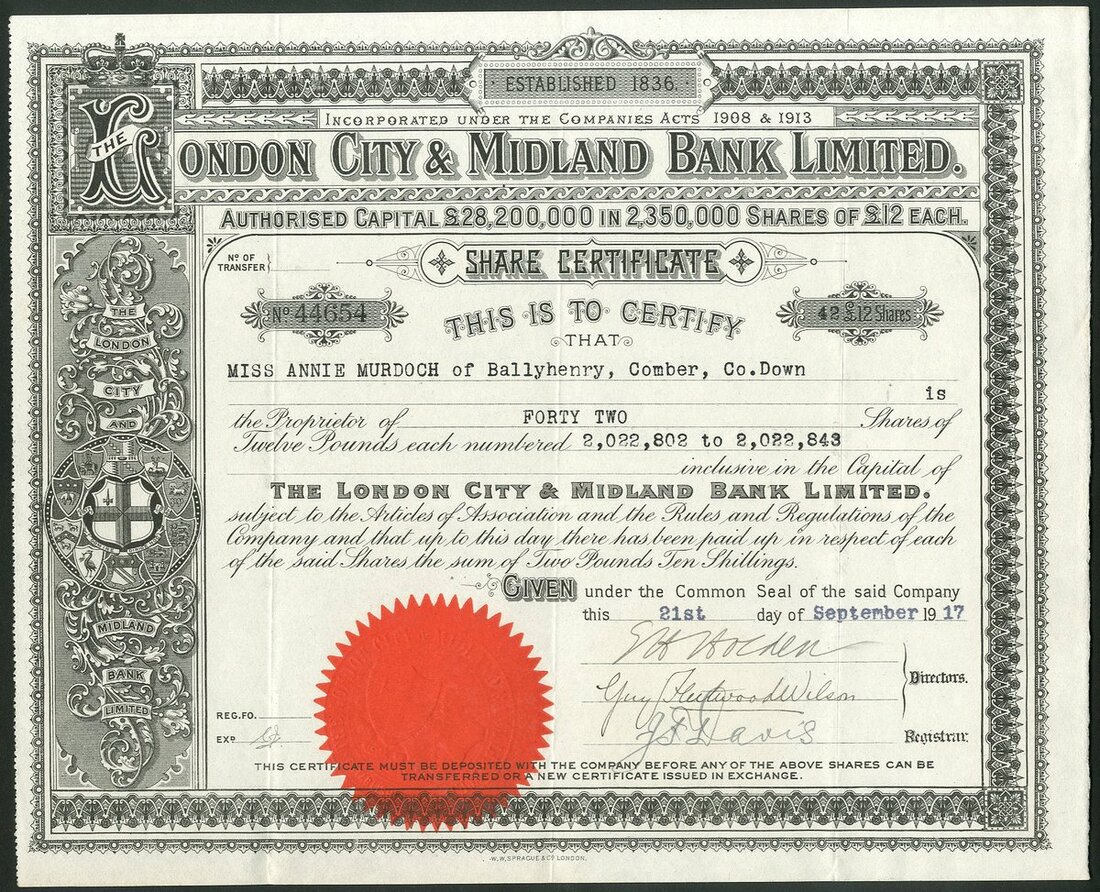 ESTABLISHED 1836.
INCORPORATED UNDER THE COMPANIES ACTS 1908 & 1913
THE LONDON CITY & MIDLAND BANK LIMITED.
AUTHORISED CAPITAL £28,200,000 IN 2,350,000 SHARES OF £12 EACH.
Nº OF TRANSFER
SHARE CERTIFICATE
Nº 44654
42 £12 Shares
THIS IS TO CERTIFY
THAT
MISS ANNIE MURDOCH of Ballyhenry, Comber, Co.Down
is
the Proprietor of FORTY TWO Shares of
Twelve Pounds each numbered 2,022,802 to 2,022,843
inclusive in the Capital of
THE LONDON CITY & MIDLAND BANK LIMITED.
subject to the Articles of Association and the Rules and Regulations of the
Company and that up to this day there has been paid up in respect of each
of the said Shares the sum of Two Pounds Ten Shillings.
GIVEN under the Common Seal of the said Company
this 21st day of September 1917
E H Holden
Guy Fleetwood Wilson
Directors.
J F Davis
Registrar.
REG.FO.
EXD
THIS CERTIFICATE MUST BE DEPOSITED WITH THE COMPANY BEFORE ANY OF THE ABOVE SHARES CAN BE
TRANSFERRED OR A NEW CERTIFICATE ISSUED IN EXCHANGE.
THE
LONDON
CITY
AND
MIDLAND
BANK
LIMITED
W.W.SPRAGUE & Cº LONDON.